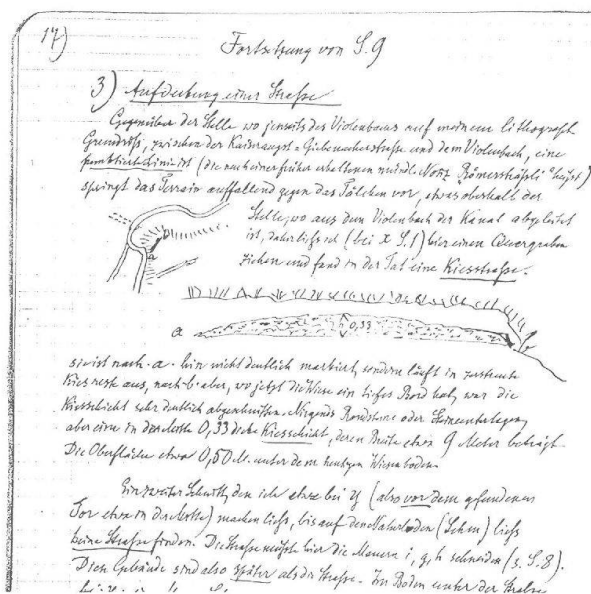 17)
Fortsetzung von S. 9
3) Aufdeckung einer Straße
Gegenüber der Stelle wo jenseits des Violenbaus auf meinem lithograph
Grundriß, zwischen der Kaiseraugst-Giebenacherstraße und dem Violenbach, eine
punktierte Linie ist (die nach einer früher erhaltenen mündl. Notiz "Römersträßli" heißt)
springt das Terrain auffallend gegen das Tälchen vor, etwas oberhalb der
Stelle, wo aus dem Violenbach der Kanal abgeleitet
ist, daher ließ ich (bei x S. 1) hier einen Quergraben
ziehen und fand in der Tat eine Kiesstraße.
b
a
a 0,33
sie ist nach · a · hin nicht deutlich markiert, sondern läuft in zerstreute
Kiesreste aus, nach · b · aber, wo jetzt die Wiese ein hohes Bord hat, war die
Kiesschicht sehr deutlich abgeschnitten. Nirgends Randsteine oder Steinunterlagen
aber eine in der Mitte 0,33 dicke Kiesschicht, deren Breite etwa 9 Meter beträgt
Die Oberfläche etwa 0,50 M. unter dem heutigen Wiesenboden
Ein zweiter Schnitt, den ich etwa bei y (also vor dem gefundenen
Tor etwa in der Mitte) machen ließ, bis auf den Naturboden (Lehm) ließ
keine Straße finden. Die Straße müßte hier die Mauern i, g, h schneiden (s. S. 8).
Diese Gebäude sind also später als die Straße. Im Boden unter der Straße